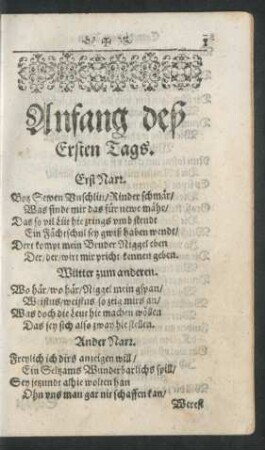 1
Anfang deß
Ersten Tags.
Erst Narr.
Botz Sewen Vnschlitt/Rinder schmär/
Was sindt mir das für newe mähr/
Das so vil Leut hie zrings vmb stendt
Ein Fächtschul sey gwiß haben wendt/
Dort kompt mein Bruder Niggel eben
Der/der/wirt mir bricht können geben.
zum anderen.
Wo här/wo här/Niggel mein gspan/
Weistus/weistus so zeig mirs an/
Was doch die Leut hie machen wöllen
Das sey sich also zwar hie stellen.
Ander Narr.
Freylich ich dirs anzeigen will/
Ein Seltzams Wunderbarlichs spill/
Sey jezunde alhie wolten han
Ohn vns mau gar nit schaffen kan/
Werest